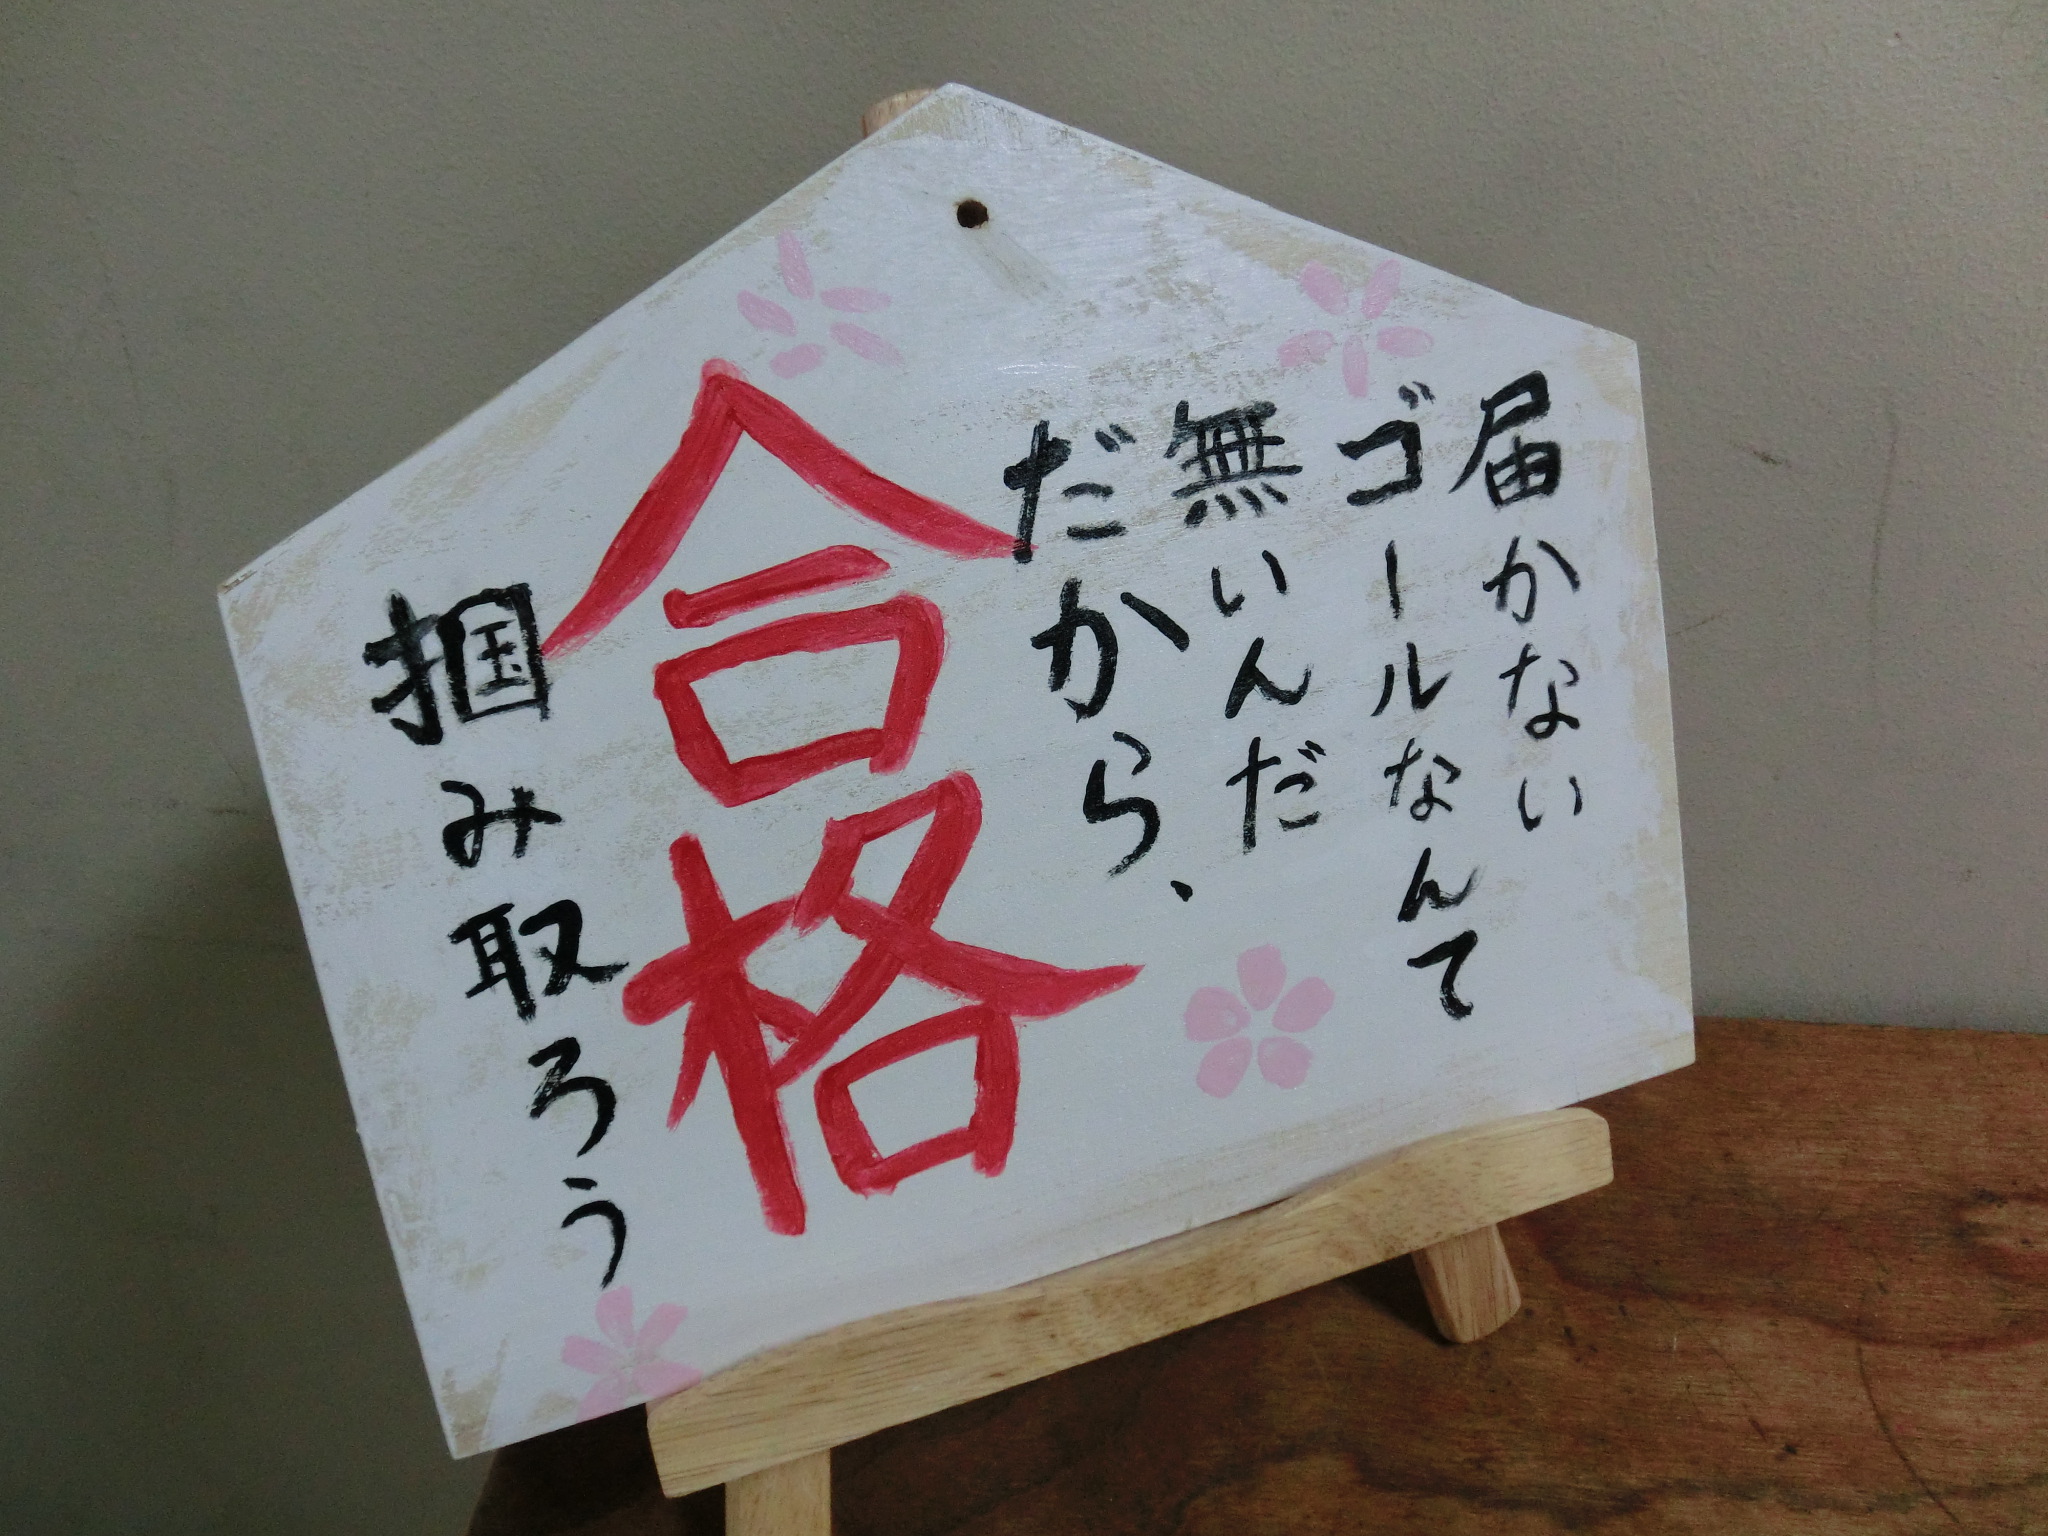 届かない
ゴールなんて
無いんだ
だから、
合格
掴み取ろう